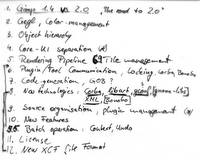 1. Gimp 1.4 vs 2.0 "The road to 2.0"
2. Gegl, Color-management
3. Object hierarchy
4. Core-UI separation
5. Rendering Pipeline Tile management
6. Plugin/Tool Communication, Locking, Corba, Bonobo
7. Code-generation, GOB
8. New technologies: Corba, libart, gnome-libs
XML, Bonobo
9. Source organisation, plugin management
10. New Features
Batch operation. Context, Undo
11. License
12. New XCF File Format